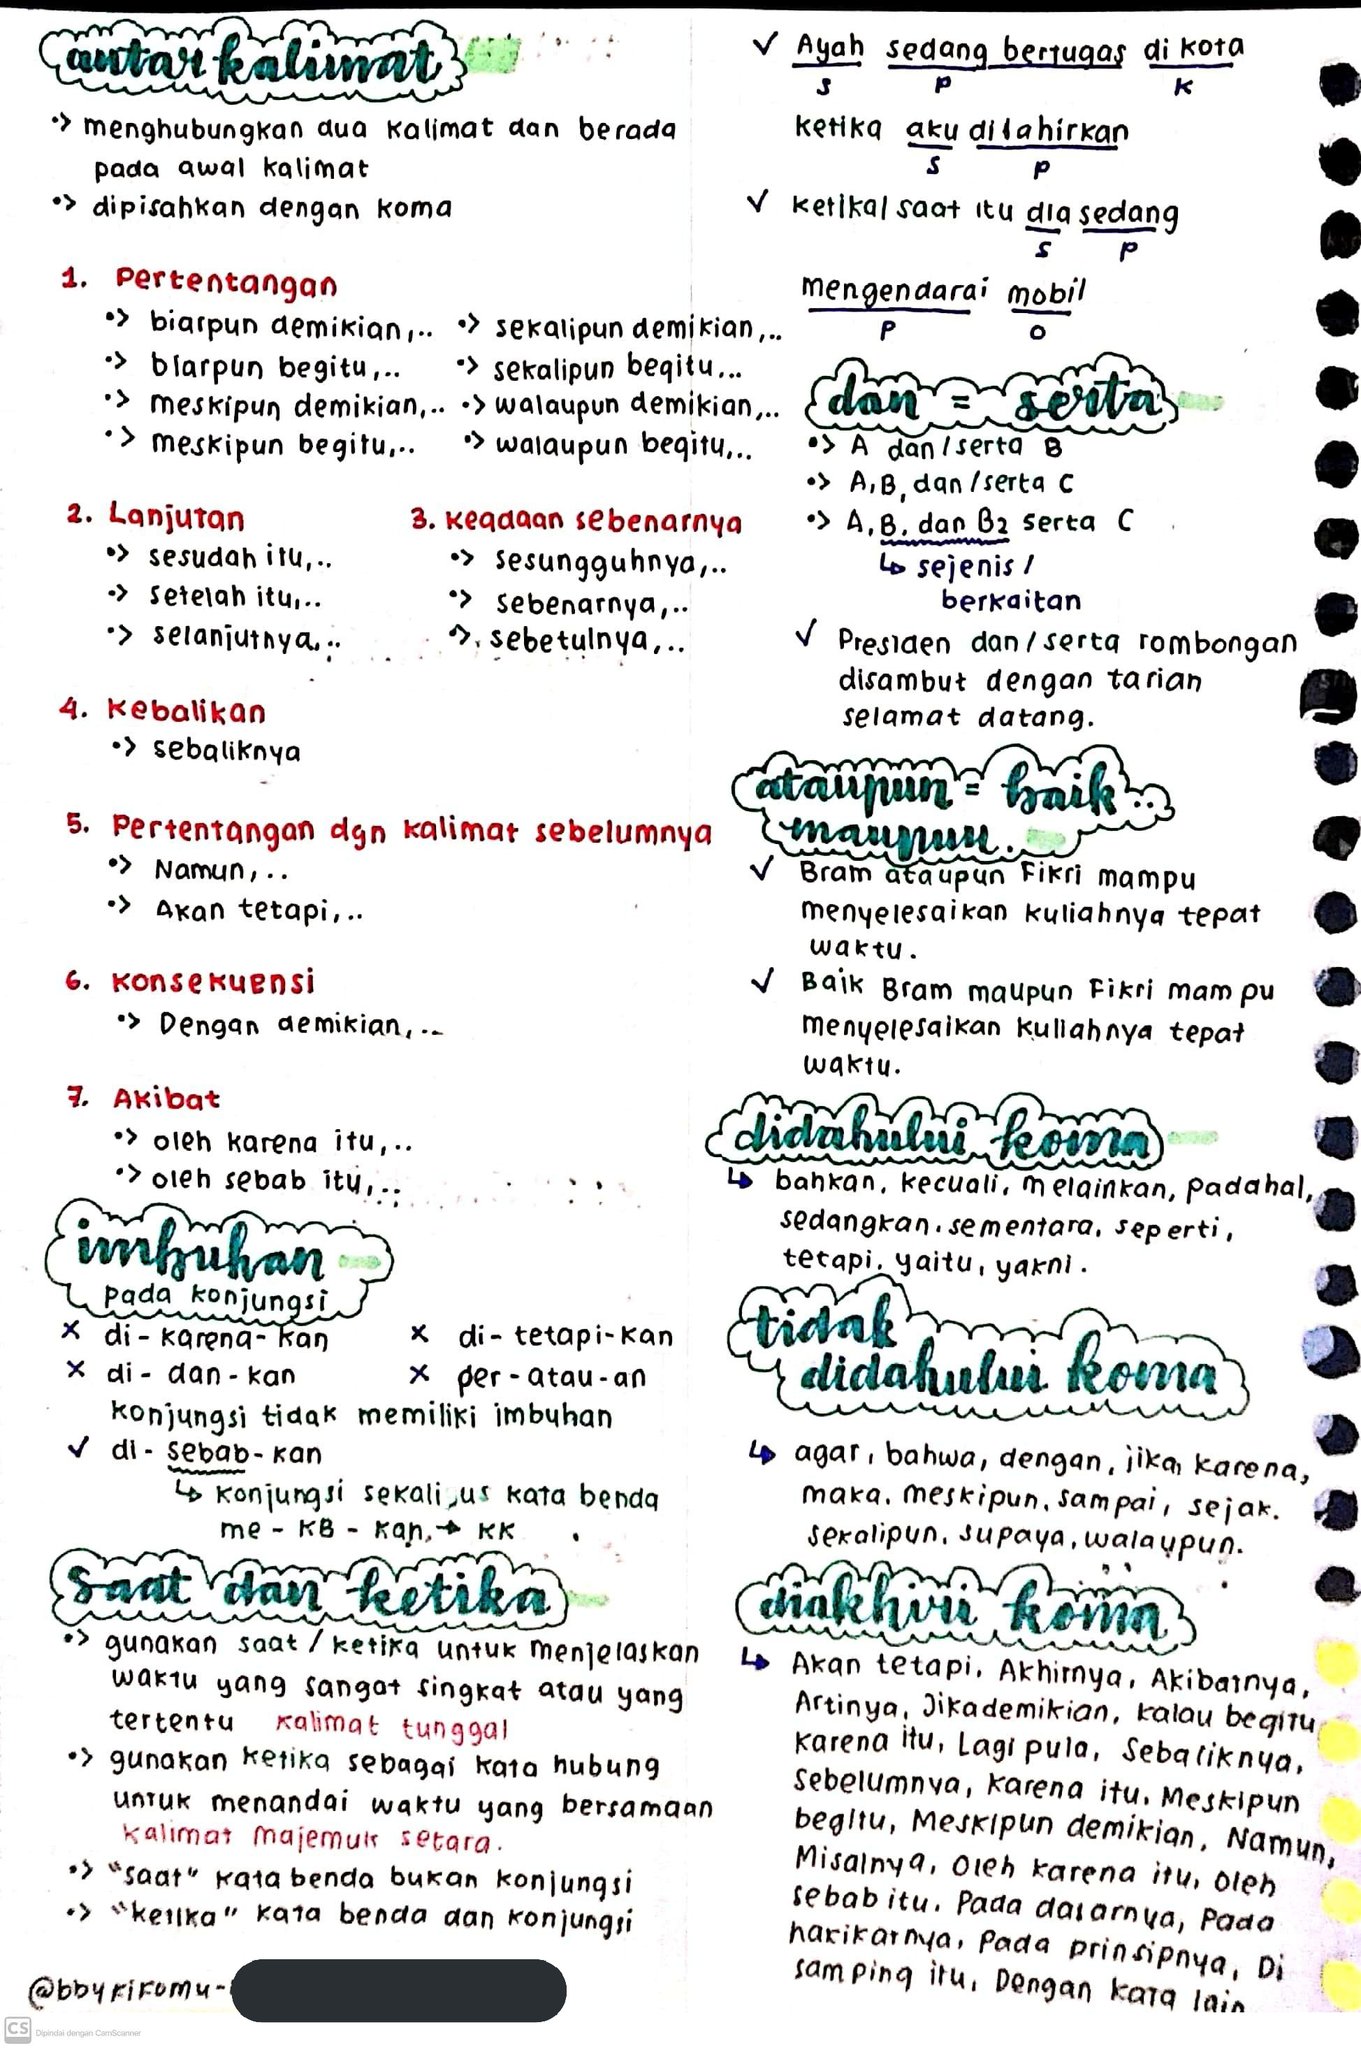 antar kalimat
•> menghubungkan dua kalimat dan berada
pada awal kalimat
•> dipisahkan dengan koma
1. Pertentangan
•> biarpun demikian,..
•> sekalipun demikian,..
•> biarpun begitu,..
•> sekalipun begitu,..
•> meskipun demikian,..
•> walaupun demikian,..
•> meskipun begitu,..
•> walaupun begitu,..
2. Lanjutan
•> sesudah itu,..
•> setelah itu,..
•> selanjutnya,..
3. Keadaan sebenarnya
•> sesungguhnya,..
•> sebenarnya,..
•> sebetulnya,..
4. Kebalikan
•> sebaliknya
5. Pertentangan dgn kalimat sebelumnya
•> Namun,..
•> Akan tetapi,..
6. Konsekuensi
•> Dengan demikian,..
7. Akibat
•> oleh karena itu,..
•> oleh sebab itu,..
imbuhan
pada konjungsi
× di-karena-kan
× di-tetapi-kan
× di-dan-kan
× per-atau-an
konjungsi tidak memiliki imbuhan
✓ di-sebab-kan
↳ konjungsi sekaligus kata benda
me-KB-kan → KK
saat dan ketika
•> gunakan saat / ketika untuk menjelaskan
waktu yang sangat singkat atau yang
tertentu kalimat tunggal
•> gunakan ketika sebagai kata hubung
untuk menandai waktu yang bersamaan
kalimat majemuk setara.
•> "saat" kata benda bukan konjungsi
•> "ketika" kata benda dan konjungsi
@bbykikomu-
CS Dipindai dengan CamScanner
✓ Ayah sedang bertugas di kota
S P K
ketika aku dilahirkan
S P
✓ ketika/saat itu dia sedang
S P
mengendarai mobil
P O
dan = serta
•> A dan/serta B
•> A, B, dan/serta C
•> A, B, dan B2 serta C
↳ sejenis /
berkaitan
✓ Presiden dan/serta rombongan
disambut dengan tarian
selamat datang.
ataupun = baik ..
maupun.
✓ Bram ataupun Fikri mampu
menyelesaikan kuliahnya tepat
waktu.
✓ Baik Bram maupun Fikri mampu
menyelesaikan kuliahnya tepat
waktu.
didahului koma
↳ bahkan, kecuali, melainkan, padahal,
sedangkan, sementara, seperti,
tetapi, yaitu, yakni.
tidak
didahului koma
↳ agar, bahwa, dengan, jika, karena,
maka, meskipun, sampai, sejak,
sekalipun, supaya, walaupun.
diakhiri koma
↳ Akan tetapi, Akhirnya, Akibatnya,
Artinya, Jikademikian, kalau begitu
karena itu, Lagi pula, Sebaliknya,
Sebelumnya, karena itu, Meskipun
begitu, Meskipun demikian, Namun,
Misalnya, oleh karena itu, oleh
sebab itu, Pada dasarnya, Pada
hakikatnya, Pada prinsipnya, Di
samping itu, Dengan kata lain